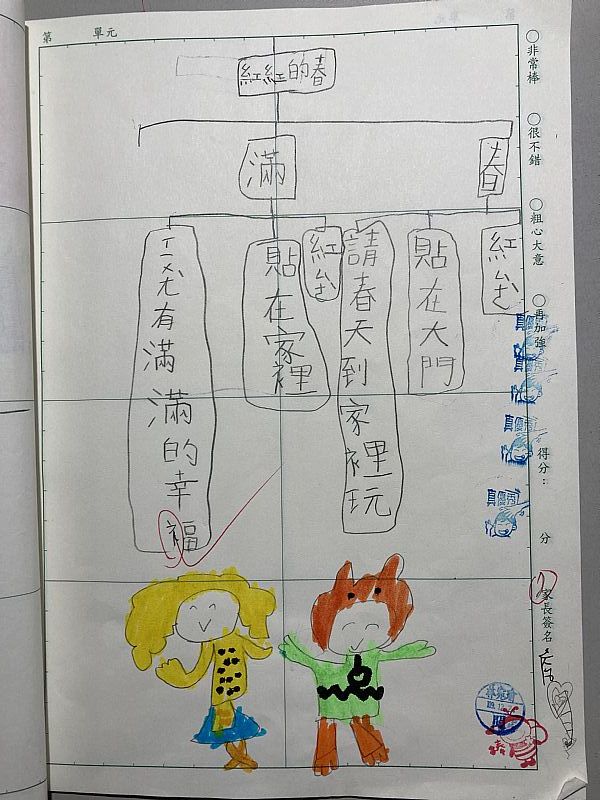 第 單元
紅紅的春
春
滿
紅
貼在大門
請春天到家裡玩
紅
貼在家裡
有滿滿的幸福
○非常棒
○很不錯
○粗心大意
○再加強
得分： 分
家長簽名
真優秀
真優秀
真優秀
真優秀